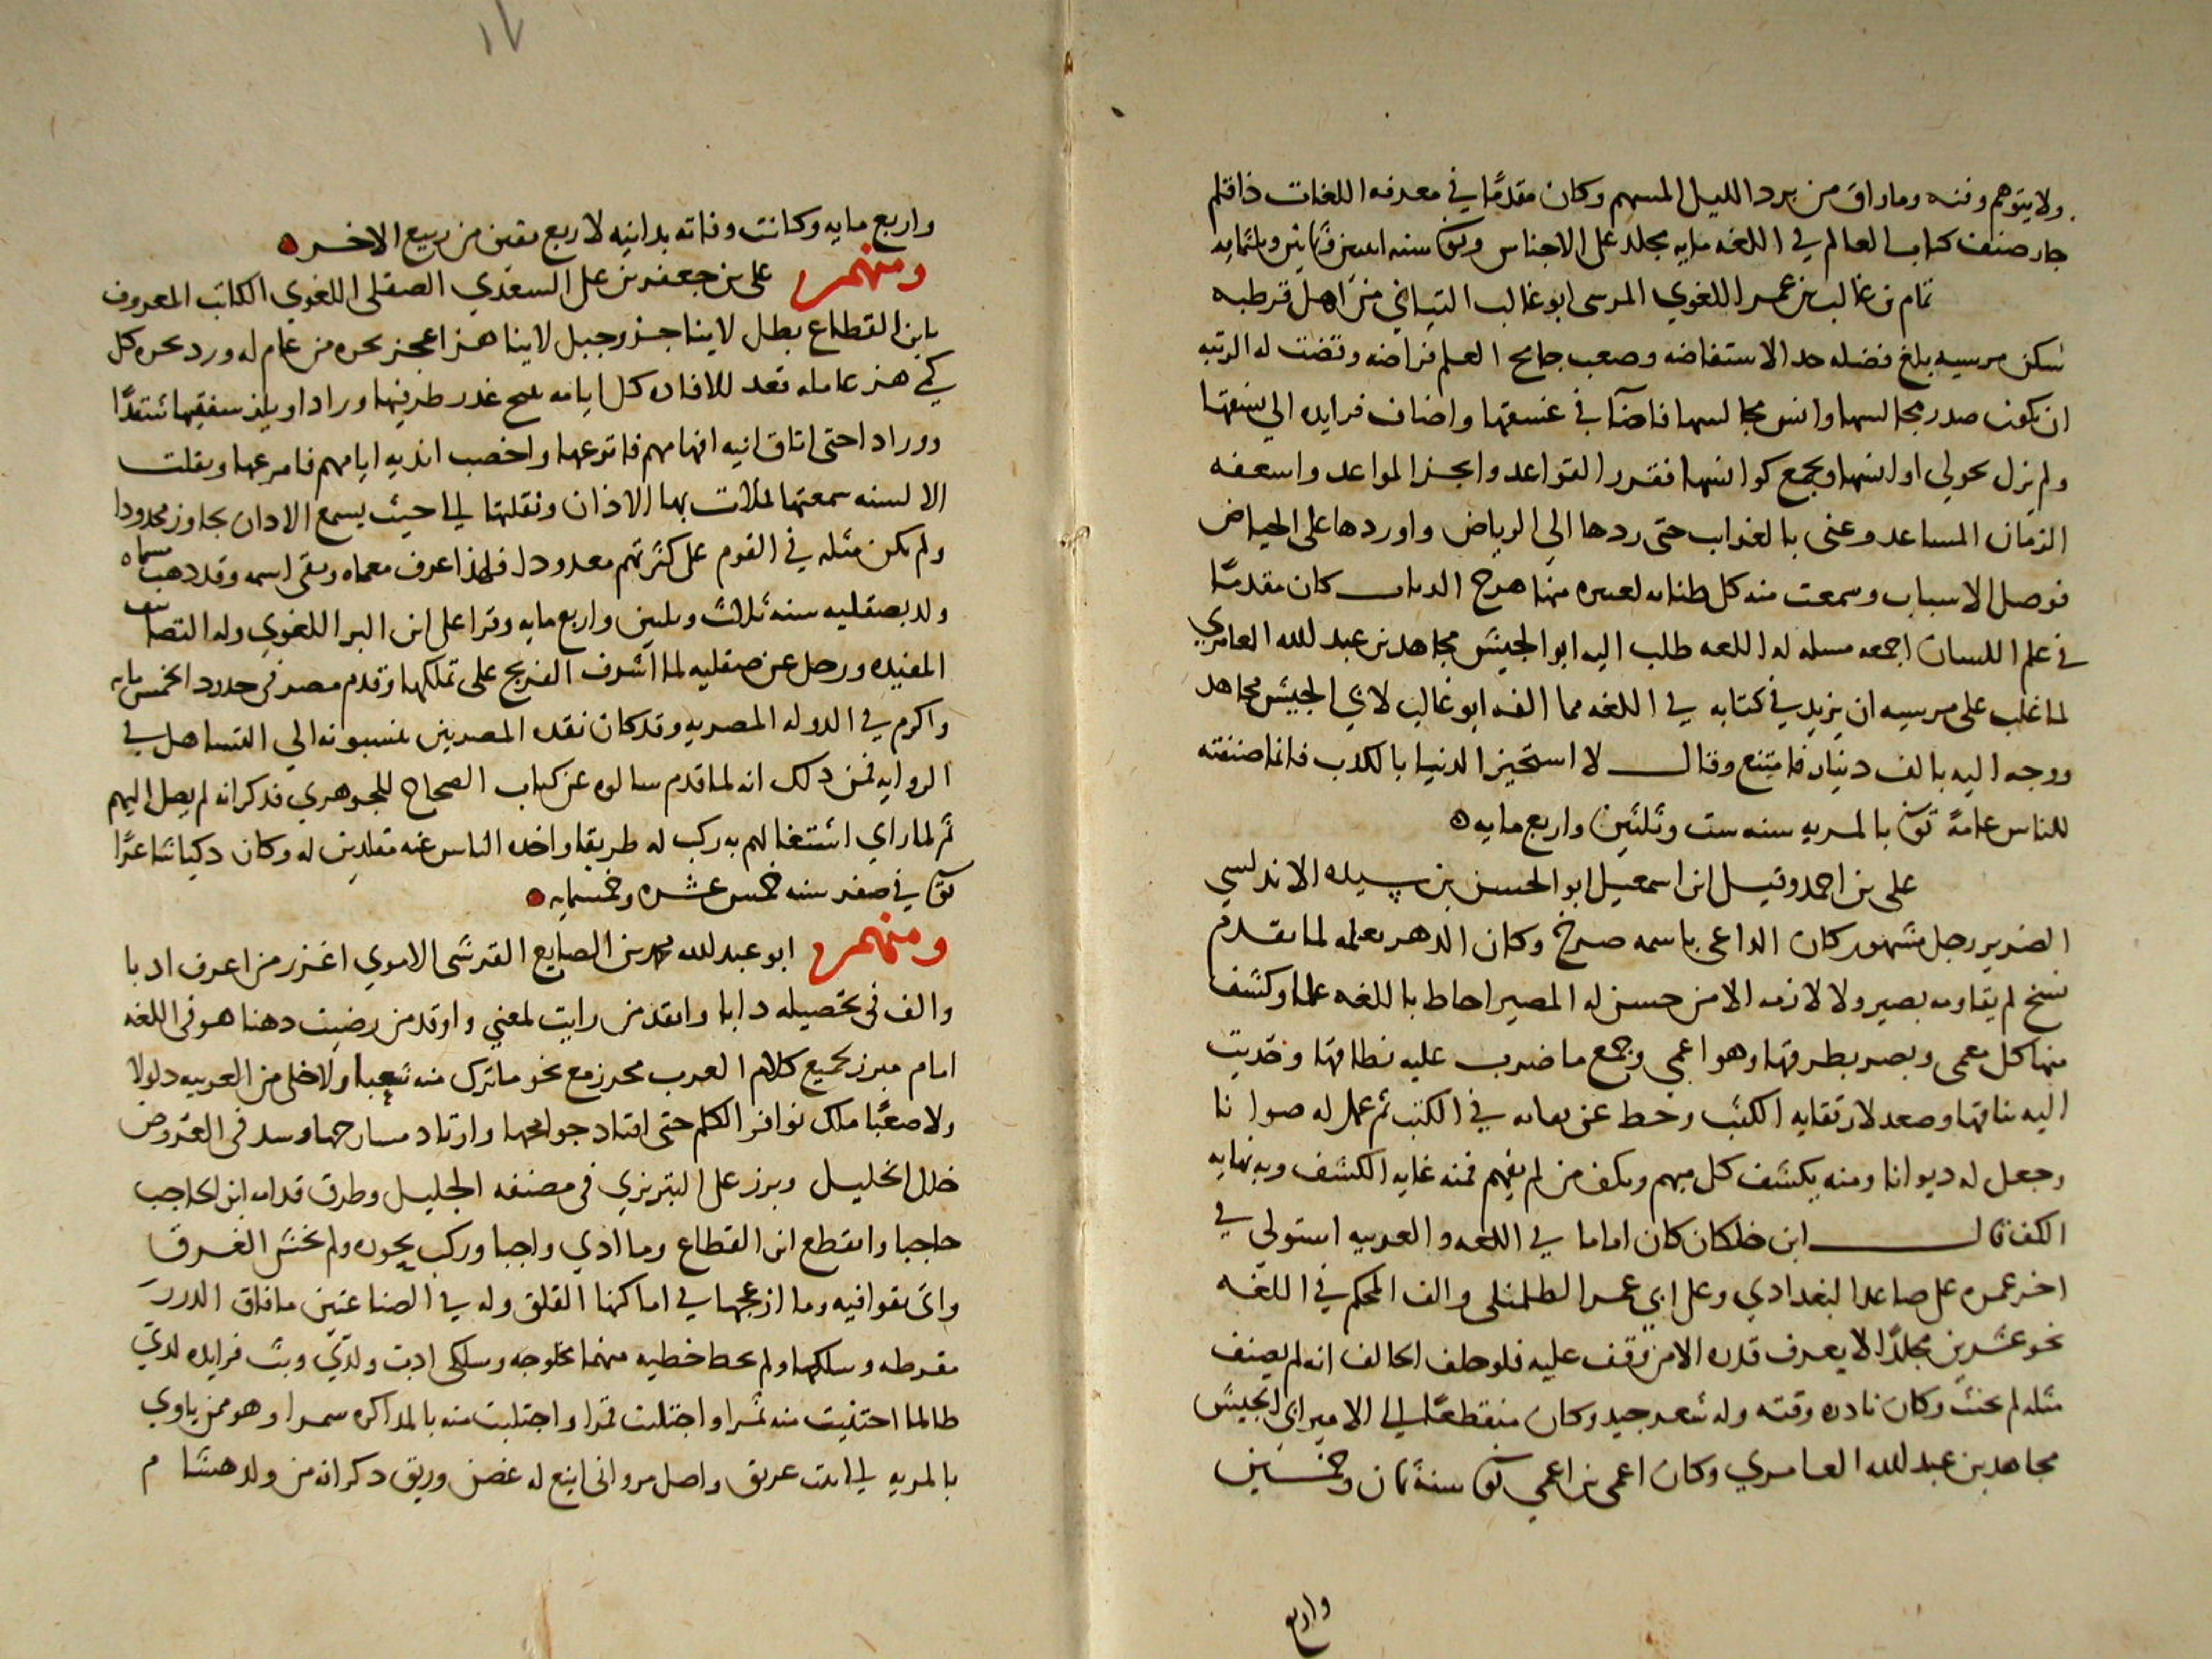 ولا يتوهم وفنه وما راق من برد الليل المسهم وكان مقدمًا في معرفه اللغات ذا قلم
جار صنف كتاب العالم في اللغه مايه مجلد على الاجناس وتوفي سنه اثنين وثمانين وثلثمايه
تمام بن غالب بن عمر اللغوي المرسى ابو غالب التياني من اهل قرطبه
سكن مرسيه بلغ فضله حد الاستفاضه وصعب جامح العلم فراضه وقضت له الرتبه
ان يكون صدر مجالسها وانس مجالسها فاضآ في غسقها واضاف فرايده الي نسقها
ولم يزل يحولي اوانسها ويجمع كوانسها فقرر القواعد وانجز المواعد واسعفه
الزمان المساعد وعنى بالغراب حتى ردها الي الرياض واوردها على الحياض
فوصل الاسباب وسمعت منه كل كان مقدمًا
في علم اللسان اجمعه مسلمه له اللغه طلب اليه ابو الجيش مجاهد بن عبد لله العامري
لما غلب على مرسيه ان يزيد في كتابه في اللغه مما الفه ابو غالب لابي الجيش مجاهد
ووجه اليه بالف دينار فامتنع وقال لا استخير الدنيا بالكذب فانما صنفته
للناس عامةً توفي بالمريه سنه ست وثلثين واربع مايه ه
على بن احمد وقيل ابن اسمعيل ابو الحسن بن سيده الاندلسي
الضرير رجل مشهور كان الداعى باسمه صرخ وكان الدهر بعلمه لما تقدم
نسخ لم يقاومه بصير ولا لازمه الا من حسن له المصير احاط باللغه علما وكشف
منها كل معمى وبصر بطرقها وهو اعمي وجمع ما ضرب عليه نطاقها وحديت
اليه نياقها وصعد لارتقايه الكثب وحط عن في الكتب ثم عمل له صوانا
وجعل له ديوانا ومنه يكشف كل مبهم ويكف من لم يفهم فمنه غايه الكشف وبه نهايه
الكف قال ابن خلكان كان اماما في اللغه والعربيه استولي في
اخر عمره على صاعد البغدادي وعلى ابي عمر الطلمنكى والف المحكم في اللغه
نحو عشرين مجلدًا لا يعرف قدره الا من وقف عليه فلو حلف الحالف انه لم يصنف
مثله لم يحنث وكان نادره وقته وله شعر جيد وكان منقطعًا الى الامير ابي الجيش
مجاهد بن عبد لله العامري وكان اعمى بن اعمي توفي سنة ثمان وخمسين
واربع
١٧
واربع مايه وكانت وفاته بدانيه لاربع بقين من ربيع الاخر ه
ومنهم على بن جعفر بن على السعدي الصقلى اللغوي الكاتب المعروف
بابن القطاع بطل لا يناجز وجبل لا يناهز اعجز بحره من عام له ورد بحره كل
كمي هز عامله قعد للافاده كل ايامه غدر طرفيها ورادا ويلف سفقيها
ووراد احتى اتاق انيه افهامهم فاترعها واخصب انديه ايامهم فامرعها ونقلت
الالسنه سمعتها لملات بها الاذان ونقلتها الى حيث يسمع الاذان بجاوز محدودا
ولم يكن مثله في القوم على كثرتهم معدودا فلهذا عرف معماه وبقى اسمه وقد ذهب مسماه
ولد بصقليه سنه ثلاث وثلثين واربع مايه وقرا على ابن البر اللغوي وله التصانيف
المفيده ورحل عن صقليه لما اشرف الفرنج على تملكها وقدم مصر في حدود الخمس مايه
واكرم في الدوله المصريه وقد كان نقده المصريين ينسبونه الي التساهل في
الروايه فمن ذلك انه لما قدم سالوه عن كتاب الصحاح للجوهري فذكر انه لم يصل اليهم
ثم لما راي اشتغالهم به ركب له طريقا واخذه الناس عنه مقلدين له وكان ذكيا شاعرًا
توفي في صفر سنه خمس عشره وخمسمايه ه
ومنهم ابو عبد لله محمد بن الصايغ القرشى الاموي اغزر من اعرف ادبا
والف في تحصيله دابا وانقد من رايت لمعني واوقد من رضيت ذهنا هو في اللغه
امام مبرز لجميع كلام العرب محرز مع نحو ما ترك منه شعبا ولا خلى من العربيه ذلولا
ولا صعبًا ملك نوافر الكلم حتى اقتاد جوامحها وارتاد مسارحها وسد في العروض
خلل الخليل وبرز على التبريزي في مصنفه الجليل وطرق قدامه ابن الحاجب
حاجبا وانقطع ابن القطاع وما ادي واجبا وركب بحوره ولم يخش الغرق
واتى بقوافيه وما ازعجها في اماكنها القلق وله في الصناعتين ما فاق الدرر
مقرطه وسلكها ولم يحط خطيه منهما مخلوجه وسلكى ادبت ولديّ وبث فرايده لديّ
طالما اجتنيت منه ثمرا واجتليت قمرا واجتلبت منه بالمذاكره سمرا وهو ممن ياوي
بالمريه الى بيت عريق واصل مرواني اينع له غصن وريق ذكر انه من ولد هشام